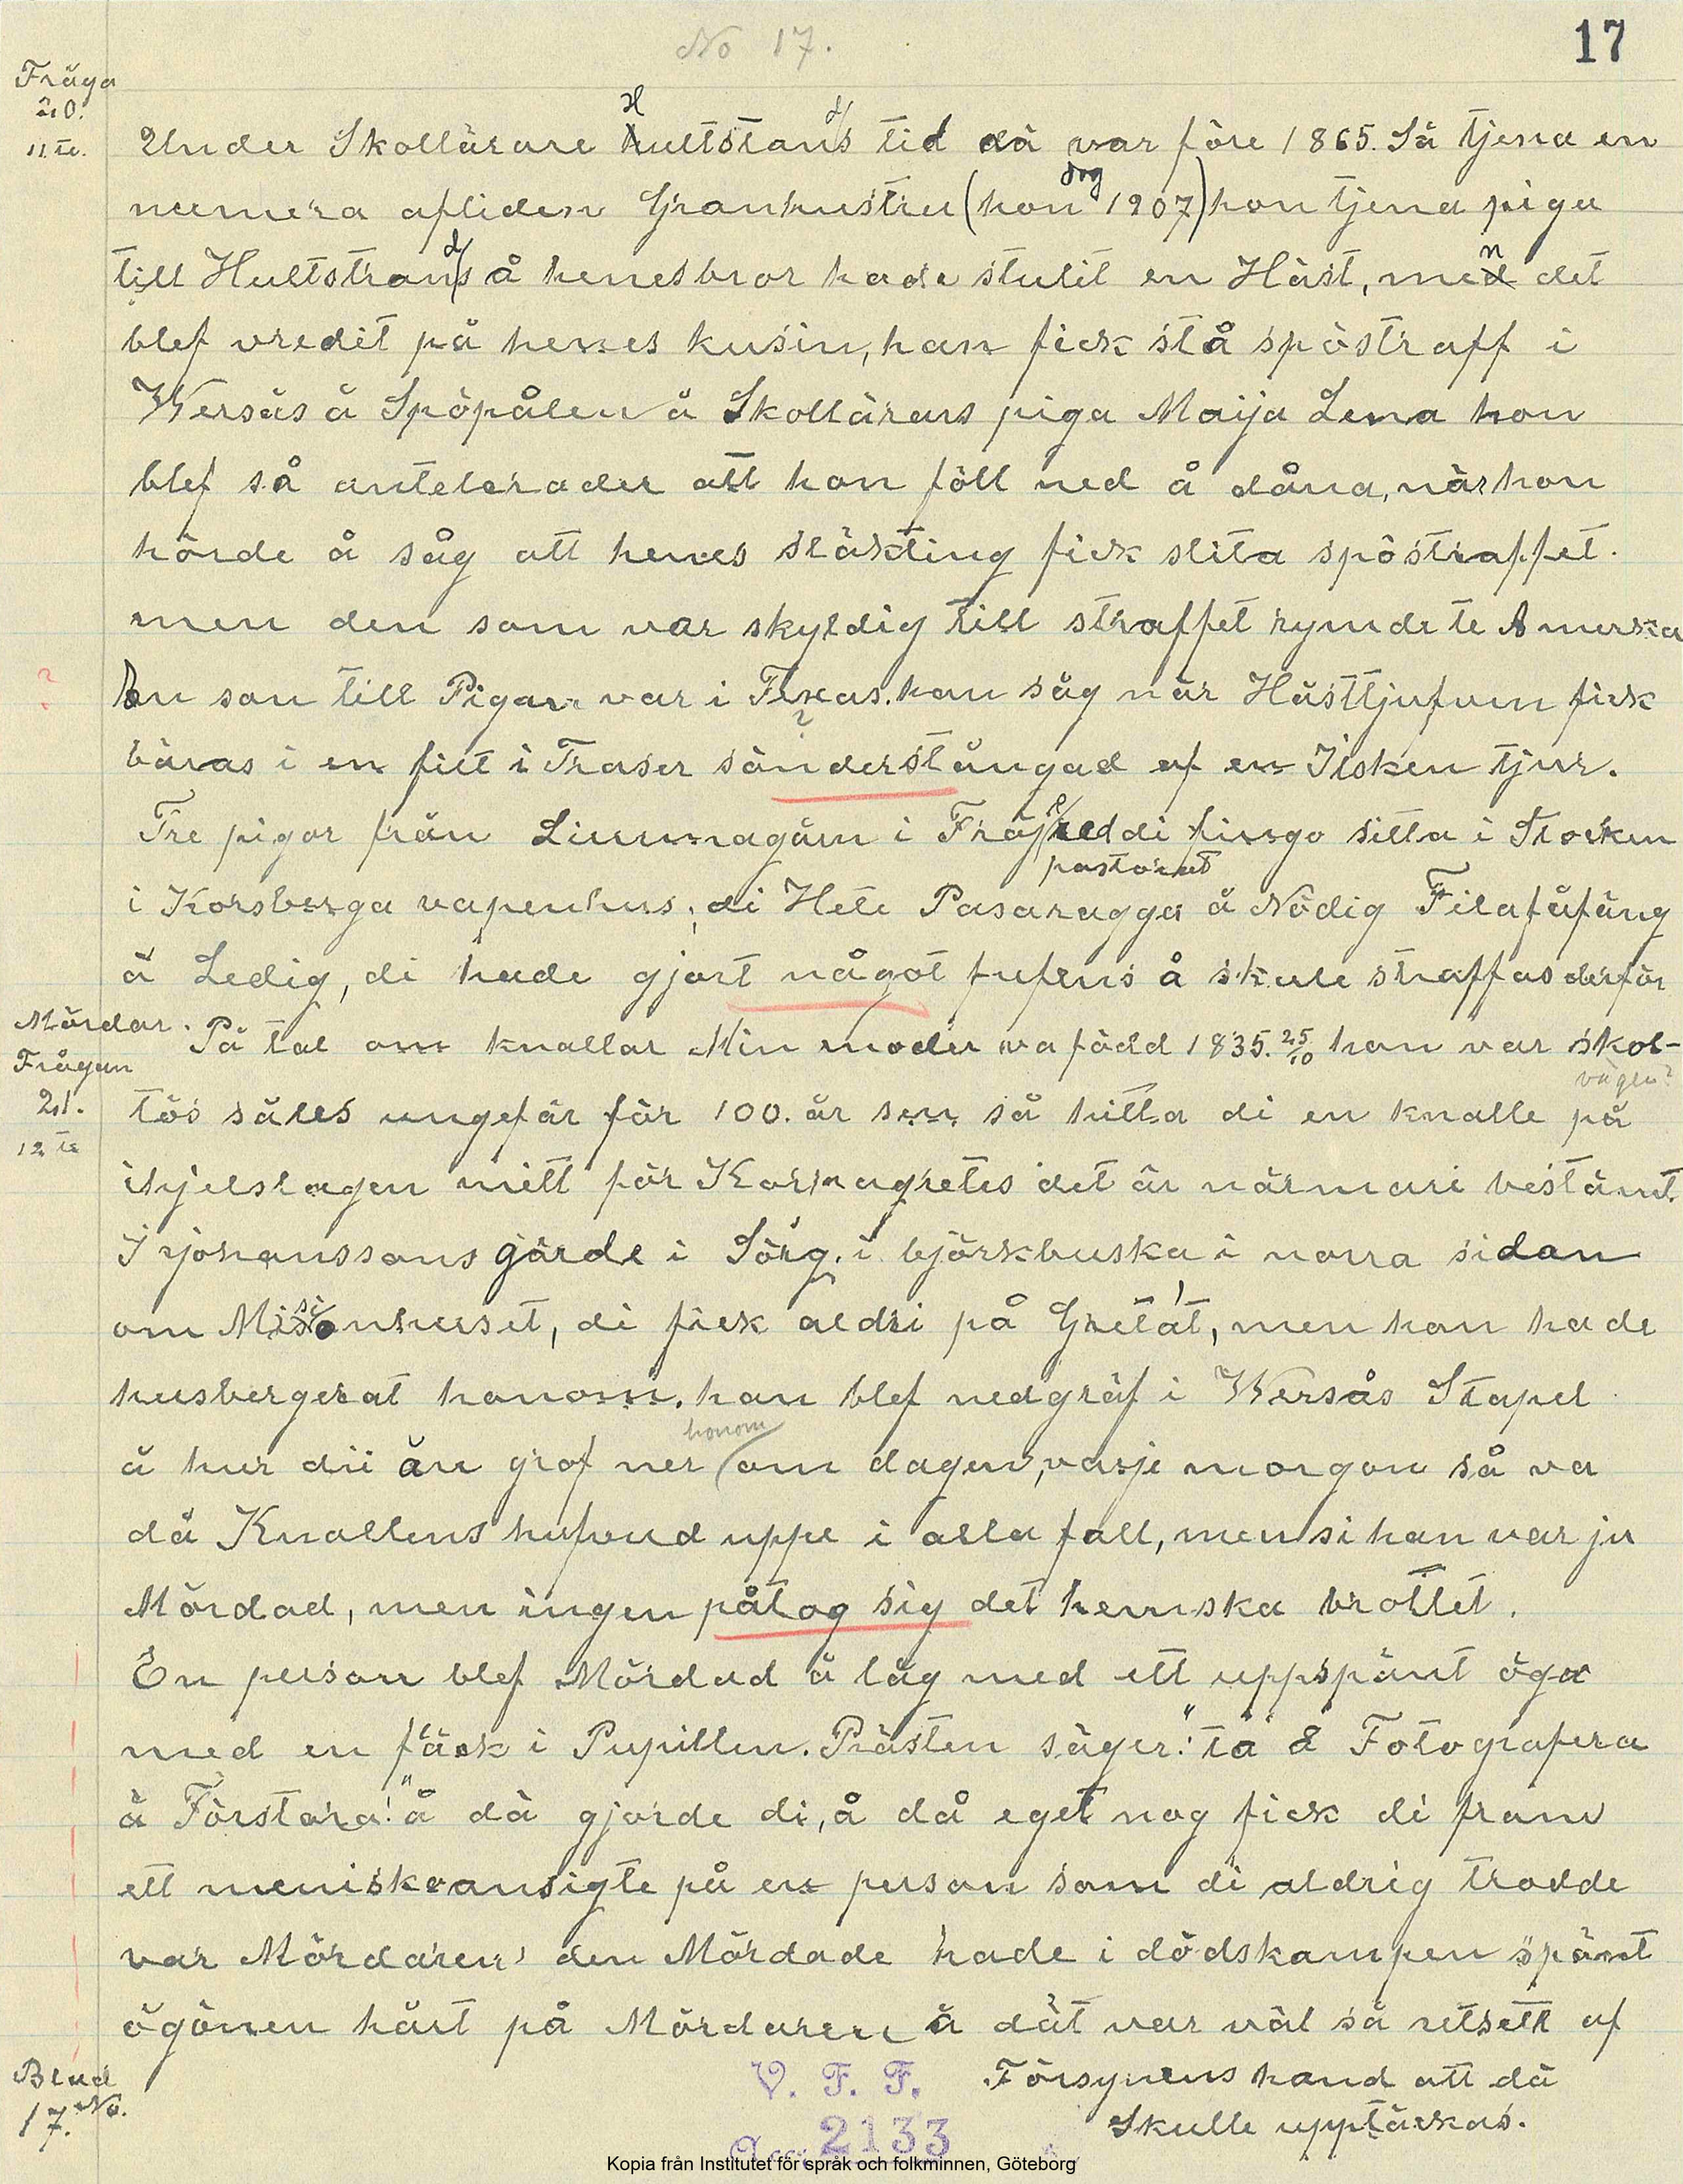 No 17.
17
Fråga
20.
11te.
Under Skollärare Hultstands tid då var före 1865. Så tjena en
numera afliden Granhustru (hon dog 1907) hon tjena piga
till Hultstrands å henes bror hade stulit en Häst, men det
blef vredit på henes kusin, han fick stå spöstraff i
Wersås å Spöpålen å Skollärars piga Maija Lena hon
blef så antelerader att hon föll ned å dåna, när hon
hörde å såg att henes släkting fick slita spöstraffet.
men den som var skyldig till straffet rymde te Amerka
?
En son till Pigan var i Texas. han såg när Hästtjufven fick
bäras i en filt i Traser sönderstångad af en Ilsken tjur.
Tre pigor från Linnmagårn i Fröjered di fingo sitta i Stocken
pastorat
i Korsberga vapenhus, di Hete Pasaragga å Nödig Filafåfäng
å Ledig, di hade gjort något fufens å skule straffas derför
Mördar.
Frågan
21.
12te
På tal om knallar Min moder va född 1835. 25/10 hon var skol-
vägen?
tös såles ungefär för 100. år sen så hitta di en knalle på
ihjelslagen mitt för Karnagretes det är närmari bestämt.
I rjohanssons gärde i Sörg. i björkbuska i norra sidan
om Missionhuset, di fick aldri på Gretat, men hon hade
husbergerat honom. han blef nedgräf i Wersås Stapel
honom
å hur dii än grof ner om dagen, varje morgon så va
då Knallens hufvud uppe i alla fall, men si han var ju
Mördad, men ingen påtog sig det hemska brottet.
En person blef Mördad å låg med ett uppspänt öga
med en fläck i Pupillen. Prästen säger: "ta å Fotografera
å Förstora!" å då gjorde di, å då eget nog fick di fram
ett meniskoansigte på en person som di aldrig trodde
var Mördaren, den Mördade hade i dödskampen spänt
ögonen hårt på Mördaren å dåt var väl så utsett af
Försynens hand att då
Skulle upptäckas.
Blad
No.
17.
V. F. F.
Acc. 2133
Kopia från Institutet för språk och folkminnen, Göteborg